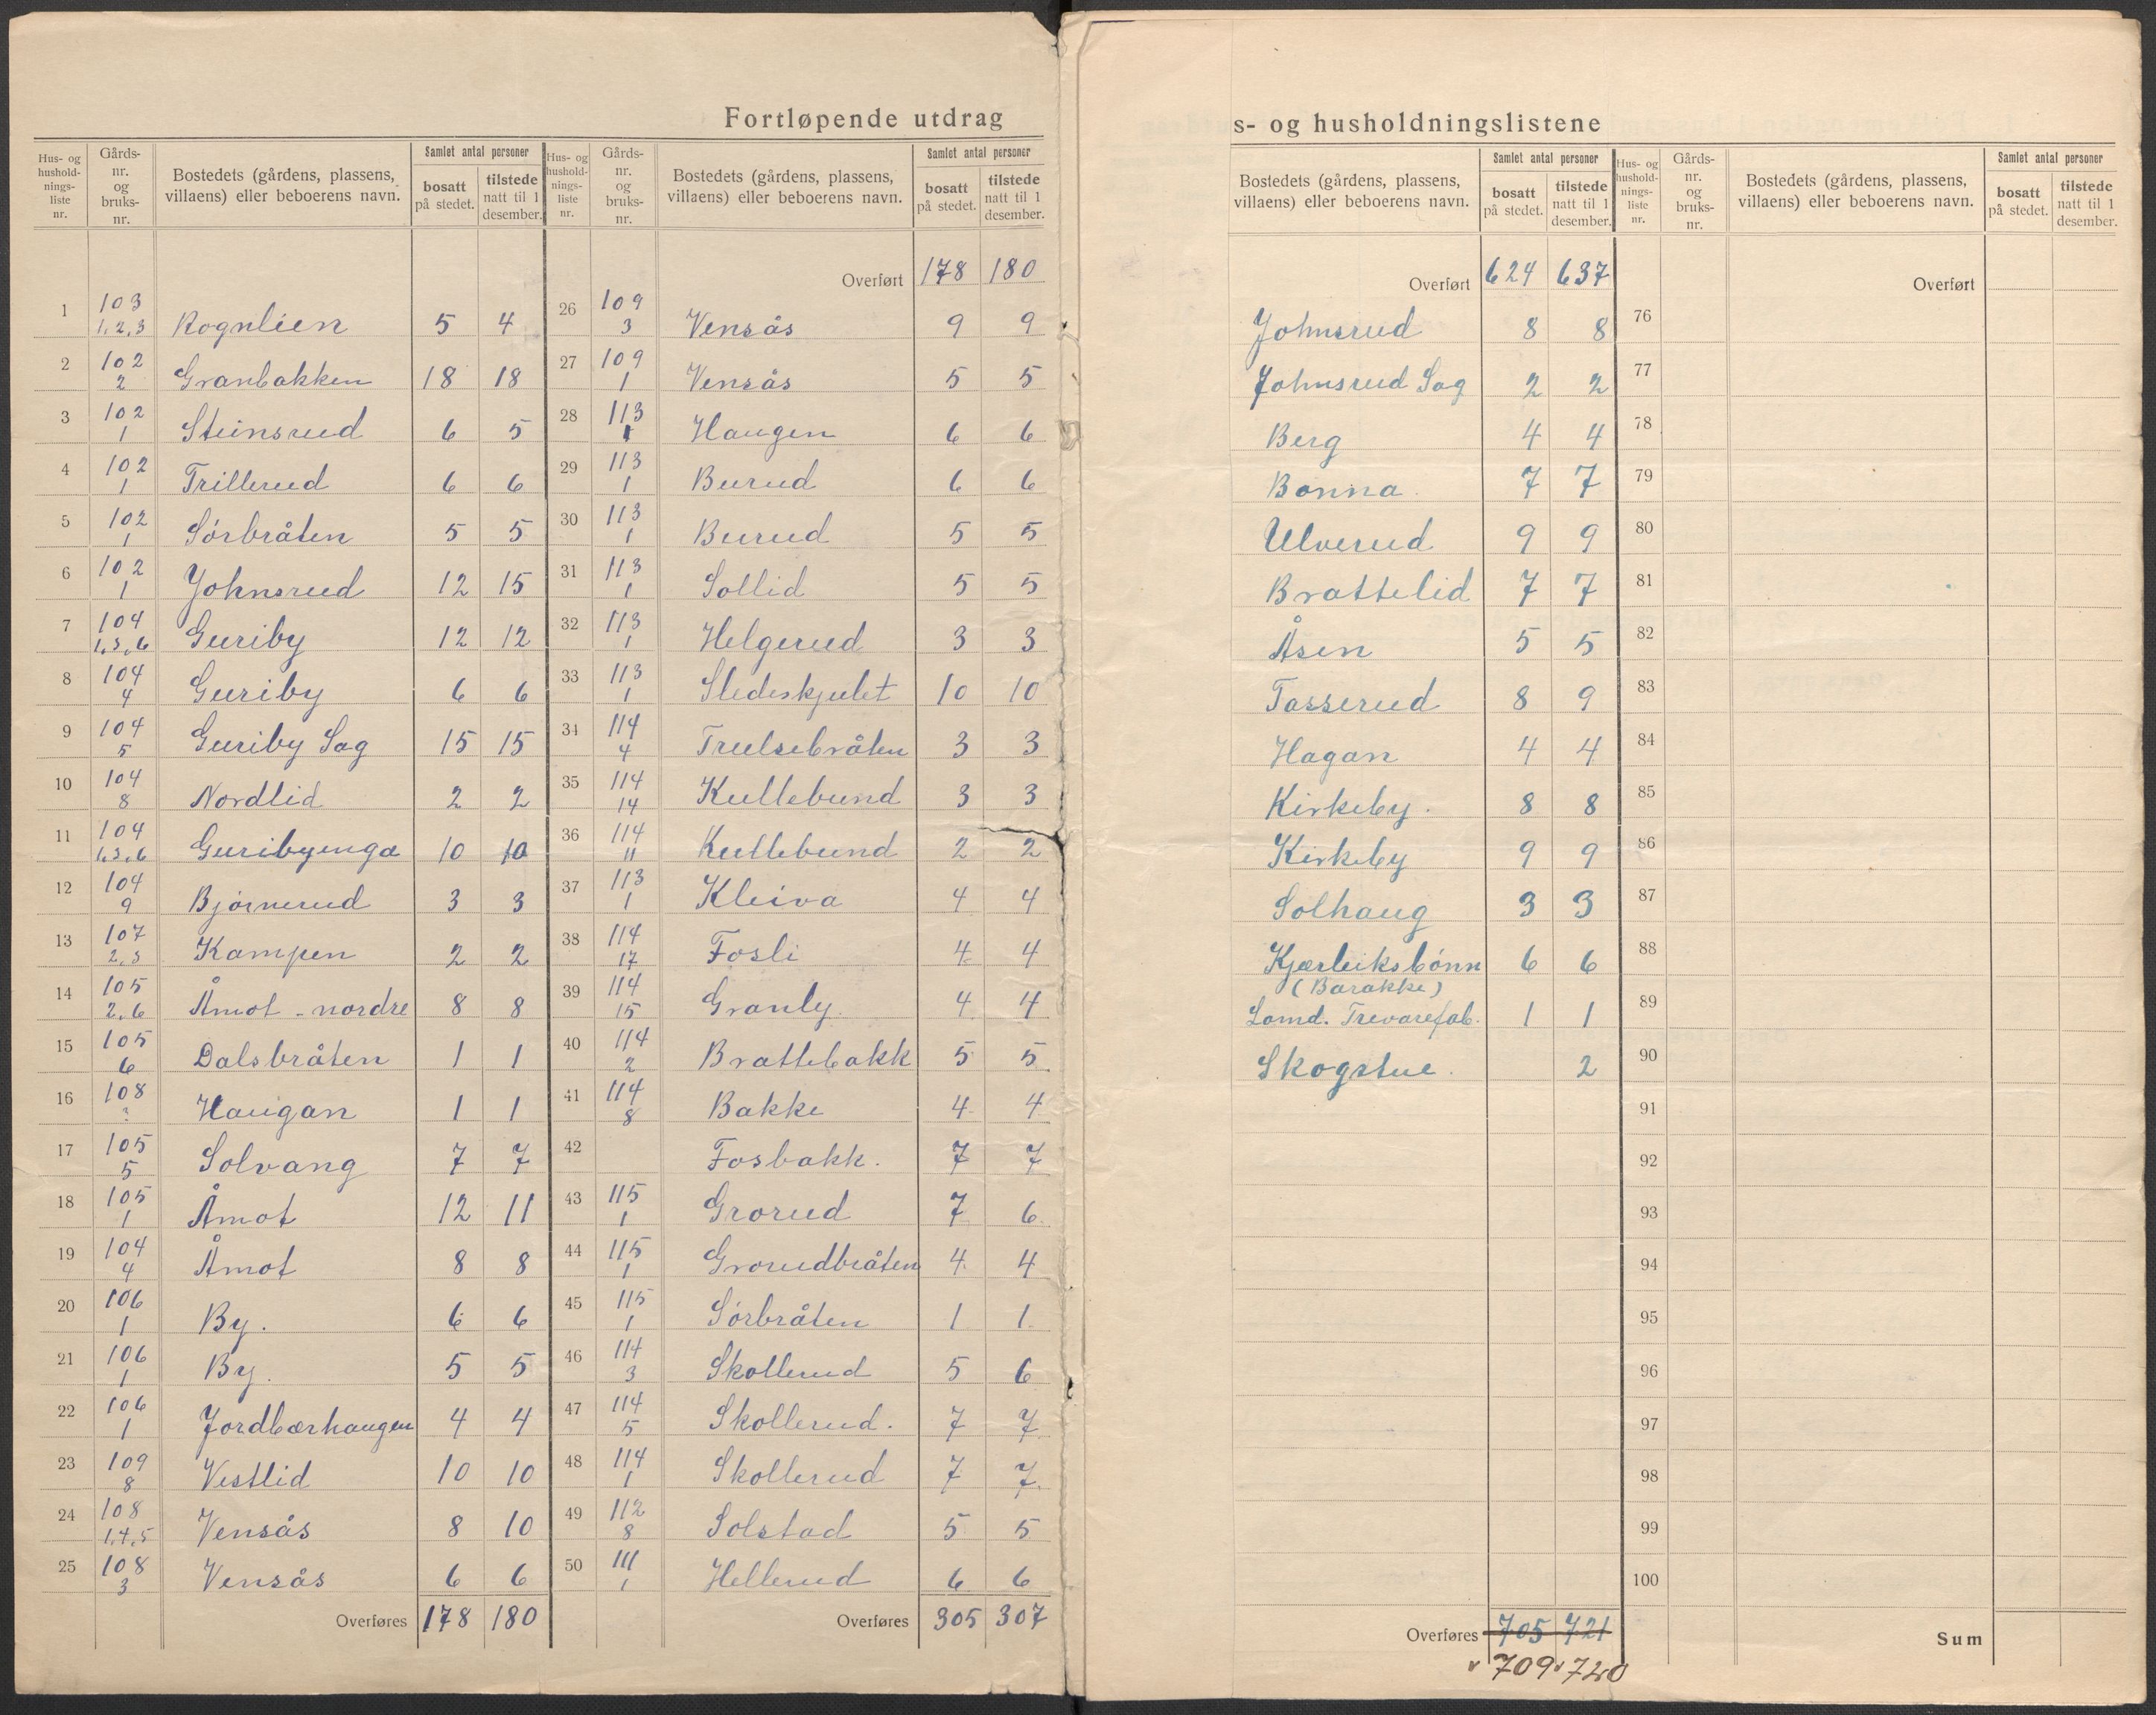 Fortløpende utdrag
Hus- og husholdningsliste nr. Gårds-nr. og bruks-nr. Bostedets (gårdens, plassens, villaens) eller beboerens navn. Samlet antal personer bosatt på stedet. tilstede natt til 1 desember.
1 103 1,2,3 Rognlien 5 4
2 102 2 Granbakken 18 18
3 102 1 Steinsrud 6 5
4 102 1 Trillerud 6 6
5 102 1 Sörbråten 5 5
6 102 1 Johnsrud 12 15
7 104 1,3,6 Guriby 12 12
8 104 4 Guriby 6 6
9 104 5 Guriby Sag 15 15
10 104 8 Nordlid 2 2
11 104 1,3,6 Guribyenga 10 10
12 104 9 Bjørnerud 3 3
13 107 2,3 Kampen 2 2
14 105 2,6 Åmot - nordre 8 8
15 105 6 Dalsbråten 1 1
16 108 Haugan 1 1
17 105 5 Solvang 7 7
18 105 1 Åmot 12 11
19 104 4 Åmot 8 8
20 106 1 By. 6 6
21 106 1 By. 5 5
22 106 1 Jordbærhaugen 4 4
23 109 8 Vestlid 10 10
24 108 1,4,5 Vensås 8 10
25 108 3 Vensås 6 6
Overføres 178 180
Hus- og husholdningsliste nr. Gårds-nr. og bruks-nr. Bostedets (gårdens, plassens, villaens) eller beboerens navn. Samlet antal personer bosatt på stedet. tilstede natt til 1 desember.
Overført 178 180
26 109 3 Vensås 9 9
27 109 1 Vensås 5 5
28 113 1 Haugen 6 6
29 113 1 Burud 6 6
30 113 1 Burud 5 5
31 113 1 Sollid 5 5
32 113 1 Helgerud 3 3
33 113 1 Sledeskjulet 10 10
34 114 4 Trulsebråten 3 3
35 114 14 Kullebund 3 3
36 114 11 Kullebund 2 2
37 113 1 Kleiva 4 4
38 114 17 Fosli 4 4
39 114 15 Granly. 4 4
40 114 2 Brattebakk 5 5
41 114 8 Bakke 4 4
42 Fosbakk. 7 7
43 115 1 Grorud 7 6
44 115 1 Grorudbråten 4 4
45 115 1 Sörbråten 1 1
46 114 3 Skollerud 5 6
47 114 5 Skollerud. 7 7
48 114 1 Skollerud 7 7
49 112 8 Solstad 5 5
50 111 1 Hellerud 6 6
Overføres 305 307
s- og husholdningslistene
Bostedets (gårdens, plassens, villaens) eller beboerens navn. Samlet antal personer bosatt på stedet. tilstede natt til 1 desember.
Overført 624 637
Johnsrud 8 8
Johnsrud Sag 2 2
Berg 4 4
Bonna. 7 7
Ulverud 9 9
Brattelid 7 7
Åsen 5 5
Tasserud 8 9
Hagan 4 4
Kirkeby. 8 8
Kirkeby 9 9
Solhaug 3 3
Kjærleiksbönn 6 6
(Barakke)
Lomd. Trevarefab. 1 1
Skogstue. 2
Overføres 705 721
709 720
Hus- og husholdningsliste nr. Gårds-nr. og bruks-nr. Bostedets (gårdens, plassens, villaens) eller beboerens navn. Samlet antal personer bosatt på stedet. tilstede natt til 1 desember.
Overført
76
77
78
79
80
81
82
83
84
85
86
87
88
89
90
91
92
93
94
95
96
97
98
99
100
Sum